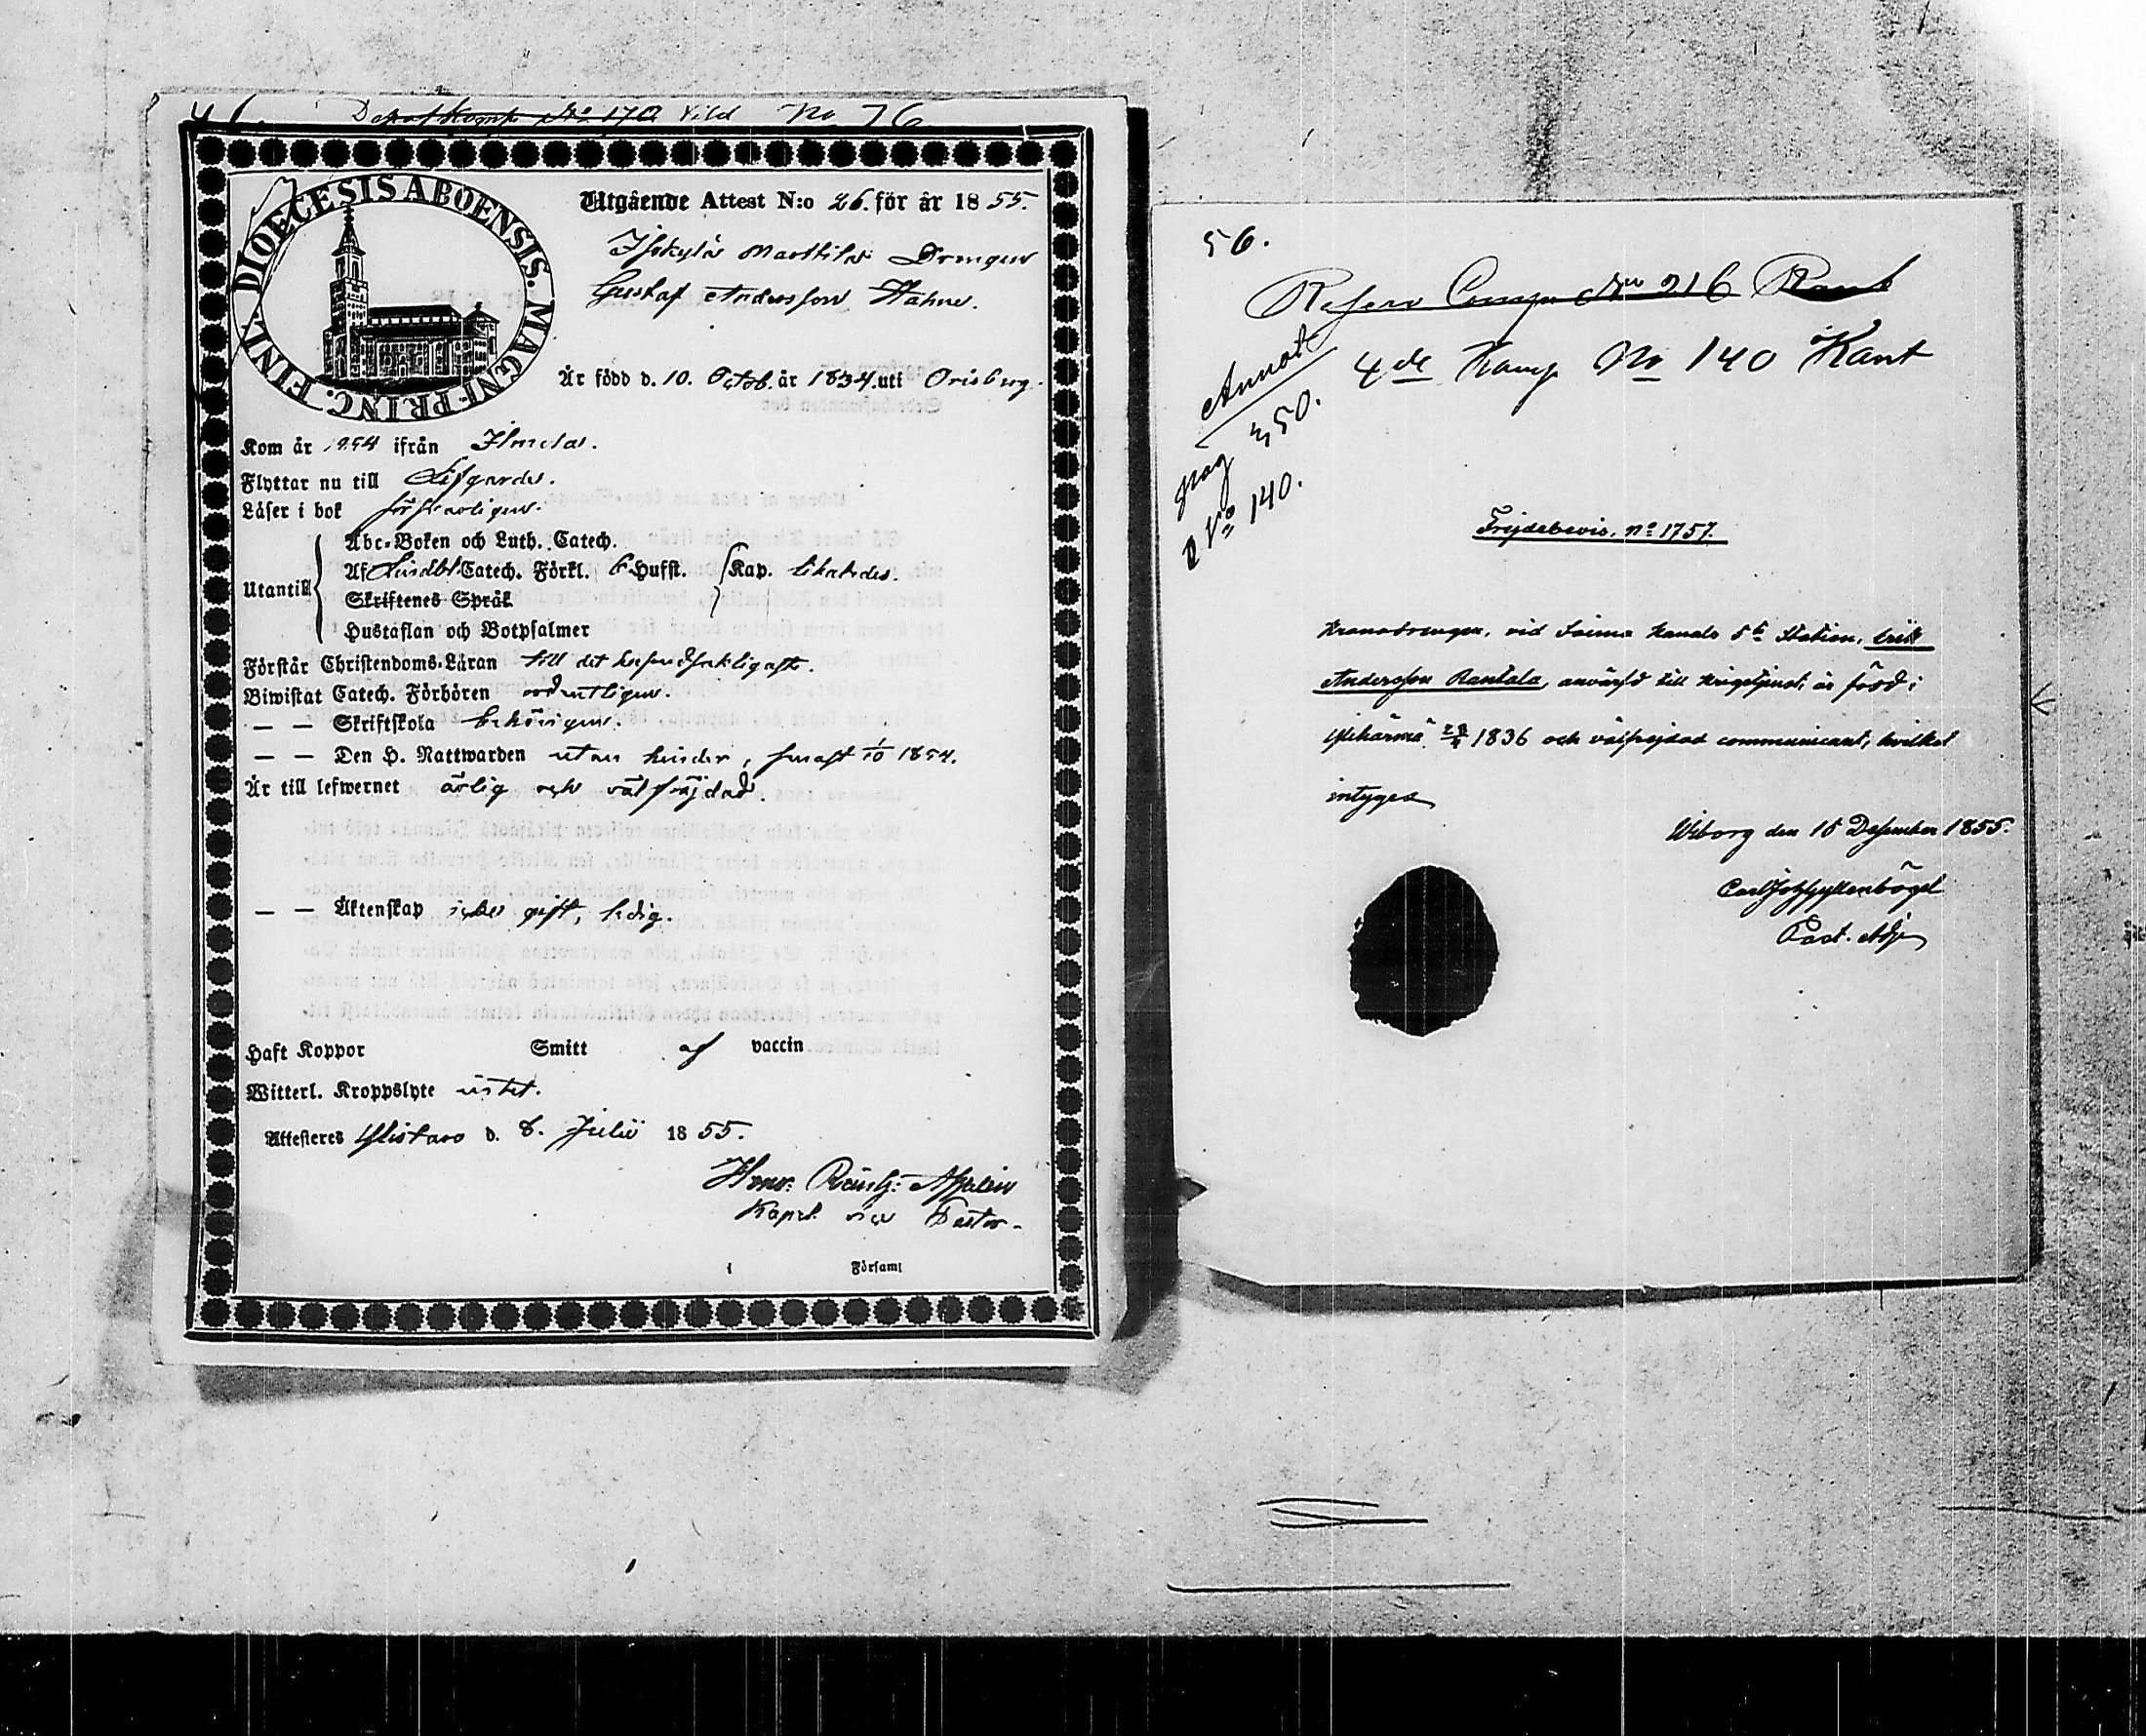 Depot Komp No 170 Vild No 76
DIOECESIS ABOENSIS. MAGNI-PRINC. FINL.
Utgående Attest N:o 26. för år 1855.
Isokylä Marttila Drengen
Gustaf Andersson Hahne.
Är född d. 10. Octob. år 1834. uti Orisberg.
Kom år 1854 ifrån Ilmola.
Flyttar nu till
Läser i bok försvarligen.
Utantill
Abc-Boken och Luth. Catech.
Af Catech. Förkl. 6 Hufst. Kap.
Skriftenes Språk
Hustaflan och Botpsalmer
Förstår Christendoms-Läran till det
Biwistat Catech. Förhören ordentligen.
— — Skriftskola behörigen.
— — Den H. Nattwarden utan hinder, senast 1/10 1854.
Är till lefwernet ärlig och välfräjdad.
— — Äktenskap icke gift, ledig.
Haft Koppor Smitt af vaccin
Witterl. Kroppslyte intet.
Attesteres Ylistaro d. 8. Julii 1855.
Kapel. vice Pastor.
i Församl
56.
Reserv Comp No 216 Kant
4de Komp No 140 Kant
Annot
pag 350.
No 140.
Frejdebevis. No 1757.
Kronodrengen, vid Saima Kanals 5te Station, Erik
Andersson Rantala, anvärfd till krigstjenst, är född i
Ylihärmä 1836 och välfrejdad communicant, hvilket
intygas
Wiborg den 15 December 1855.
Carl Joh Gyllenbögel
Past. Adj